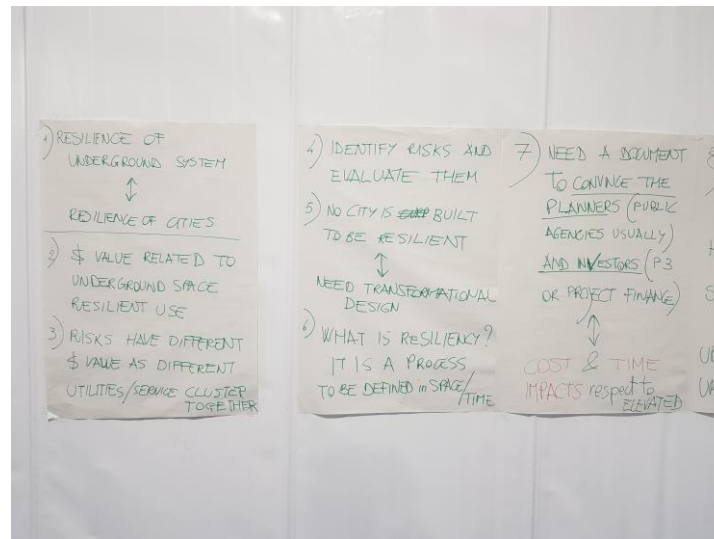 1) RESILIENCE OF
UNDERGROUND SYSTEM
↕
RESILIENCE OF CITIES
2) $ VALUE RELATED TO
UNDERGROUND SPACE
RESILIENT USE
3) RISKS HAVE DIFFERENT
$ VALUE AS DIFFERENT
UTILITIES/SERVICE CLUSTER
TOGETHER
4) IDENTIFY RISKS AND
EVALUATE THEM
5) NO CITY IS BUILT
TO BE RESILIENT
↕
NEED TRANSFORMATIONAL
DESIGN
6) WHAT IS RESILIENCY?
IT IS A PROCESS
TO BE DEFINED in SPACE/
TIME
7) NEED A DOCUMENT
TO CONVINCE THE
PLANNERS (PUBLIC
AGENCIES USUALLY)
AND INVESTORS (P3
OR PROJECT FINANCE)
↕
COST & TIME
IMPACTS respect to
ELEVATED